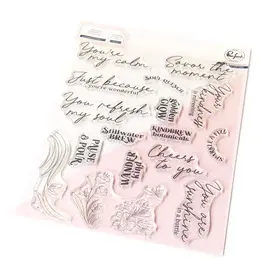 You're my calm
Savor the
moment
Just because
you're wonderful
You refresh
my soul
golden
GLOW
Your
Stillwater
BREW
KINDBREW
botanicals
PAUSE
& POUR
WANDER
kind
Cheers
to you
You are
sunshine
in a bottle